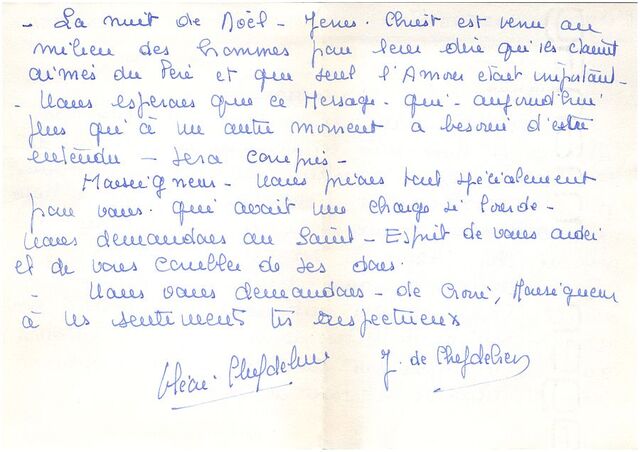 - La nuit de Noël - Jesus. Christ est venu au
milieu des hommes pour leur dire qu'ils étaient
aimés du Père et que seul l'Amour était important -
- Nous esperons que ce Message - qui - aujourd'hui
plus qu'à un autre moment a besoin d'etre
entendu - sera compris -
Monseigneur - nous prions tout spécialement
pour vous. qui avait une charge si lourde -
nous demandons au Saint - Esprit de vous aider
et de vous combler de ses dons.
- Nous vous demandons - de croire, Monseigneur
à nos sentiments très respectueux
Chefdebien J. de Chefdebien